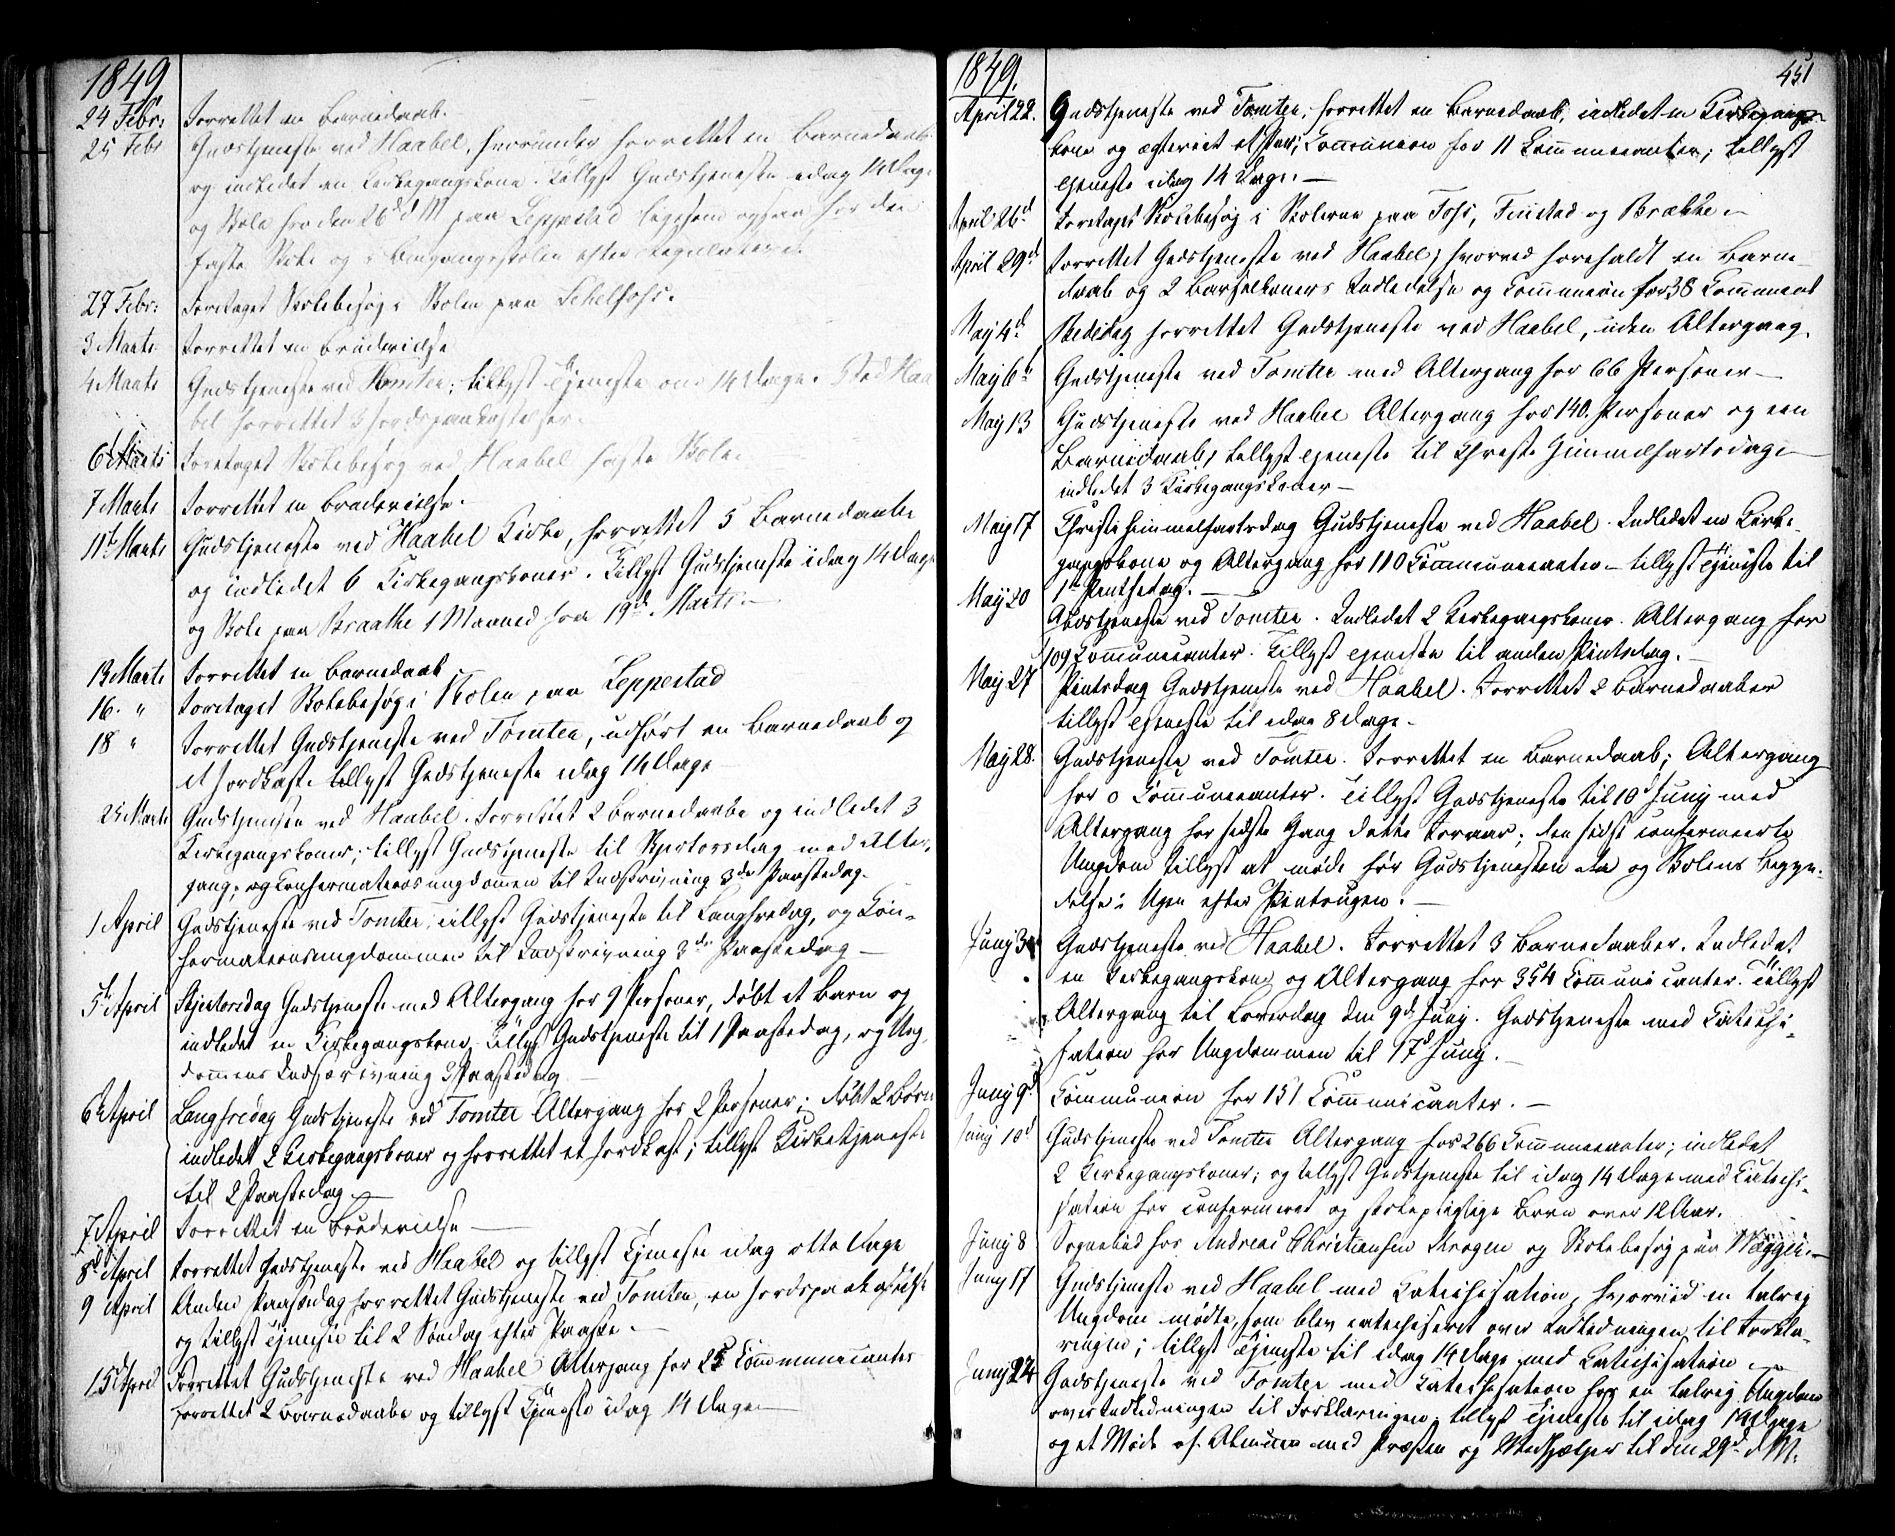 1849
24 Febr: Forrettet en Barnedaab.
25 Febr Gudstjeneste ved Haabel, hvorunder forrettet en Barnedaab
og indledet en Kirkegangskone. Tillyst Gudstjeneste idag 14 Dage
og Skole fra den 26d d M paa Leppestad ligesom ogsaa for den
faste Skole og Omgangsskolen efter Regulativet.
27 Febr: Foretaget Skolebesøg i Skolen paa Sekelfoss.
3 Marts Forrettet en Brudevielse
4 Marts Gudstjeneste ved Tomter; tillyst Tjeneste om 14 Dage. Ved Haa
bel forrettet 3 Jordspaakastelser.
6 Marts Foretaget Skolebesøg ved Haabel faste Skole.
7 Marts Forrettet en Brudevielse.
11te Marts Gudstjeneste ved Haabel Kirke, forrettet 5 Barnedaabe
og indledet 6 Kirkegangskoner. Tillyst Gudstjeneste idag 14 Dage
og Skole paa Braathe 1 Maaned fra 19d. Marts.
13 Marts Forrettet en Barnedaab
16. " Foretaget Skolebesøg i Skolen paa Leppestad
18 " Forrettet Gudstjeneste ved Tomter, udført en Barnedaab og
et Jordkast. tillyst Gudstjeneste idag 14 Dage
25 Marts Gudstjenesten ved Haabel. Forrettet 2 Barnedaabe og indledet 3
Kirkegangskoner; tillyst Gudstjeneste til Skjertorsdag med Alter,
gang, og Confirmationsungdommen til Indskrivning 3de Paaskedag.
1 April Gudstjeneste ved Tomter, tillyst Gudstjeneste til Langfredag, og Con-
firmationsungdommen til Indskrivning 3de Paaskedag
5te April Skjertorsdag Gudstjeneste med Altergang for 9 Personer, døbt et Barn og
indledet en Kirkegangskone. Tillyst Gudstjeneste til 1 Paaskedag, og Ung
dommens Indskrivning 3 Paaskedag
6te April Langfredag Gudstjeneste ved Tomter Altergang for 2 Personer; døbt 2 Børn
indledet 2 Kirkegangskoner og forrettet et Jordkast; tillyst Kirketjeneste
til 2 Paaskedag
7 April Forrettet en Brudevielse
8d April Forrettet Gudstjeneste ved Haabel og tillyst Tjeneste idag otte Dage
9 April Anden Paaskedag forrettet Gudstjeneste ved Tomter, en Jordspaakastelse
og tillyst Tjeneste til 2 Søndag efter Paaske.
15d April Forrettet Gudstjeneste ved Haabel Altergang for 25 Communicanter
forrettet 2 Barnedaabe og tillyst Tjeneste idag 14 Dage
1849. 451
April 22. Gudstjeneste ved Tomter, forrettet en Barnedaab, indledet en Kirkegangs
kone og ægteviet et Par; Communion for 11 Communicanter; tillyst
Tjeneste idag 14 Dage.
April 26d Foretaget Skolebesøg i Skolerne paa Foss, Finstad og Brække
April 29d Forrettet Gudstjeneste ved Haabel; hvorved foreholdt en Barne
daab og 2 Barselkoners Indledelse og Communion for 38 Communi
May 4d Bededag forrettet Gudstjeneste ved Haabel, uden Altergang.
May 6te Gudstjeneste ved Tomter med Altergang for 66 Personer
May 13 Gudstjeneste ved Haabel Altergang for 140. Personer og een
Barnedaab, tillyst Tjeneste til Christi Himmelfartsdag
indledet 3 Kirkegangskoner
May 17 Christi himmelfartsdag Gudstjeneste ved Haabel. Indledet en Kirke-
gangskone og Altergang for 110 Communicanter - tillyst Tjeneste til
1ste Pintsedag.
May 20 Gudstjeneste ved Tomter. Indledet 2 Kirkegangskoner. Altergang for
109 Communicanter. Tillyst Tjeneste til anden Pintsdag.
May 27 Pintsdag Gudstjeneste ved Haabel. Forrettet 2 Barnedaaber
tillyst Tjeneste til idag 8 Dage.
May 28. Gudstjeneste ved Tomter. Forrettet en Barnedaab; Altergang
for 0 Communicanter. Tillyst Gudstjeneste til 10d Juny med
Altergang for sidste Gang dette Foraar; den sidst confirmeerte
Ungdom tillyst at møde før Gudstjenesten og Skolens begyn-
delse i Ugen efter Pintseugen.
Juny 3 Gudstjeneste ved Haabel. Forrettet 3 Barnedaaber. Indledet
en Kirkegangskone og Altergang for 354 Communicanter. Tillyst
Altergang til Løverdag den 9d Juny. Gudstjeneste med Catechi-
sation for Ungdommen til 17d Juny.
Juny 9d Communion for 151 Communicanter.
Juny 10d Gudstjeneste ved Tomter Altergang for 266 Communicanter; indledet
2 Kirkegangskoner; og tillyst Gudstjeneste til idag 14 Dage med Catechi-
sation for confirmeret og skolepligtige Børn over 12 Aar.
Juny 8 Sognebud hos Andreas Christiansen Krogen og Skolebesøg paa
Juny 17 Gudstjeneste ved Haabel med Catechisation, hvorved en talrig
Ungdom mødte, som blev catechiseret over Indledningen til Forkla-
ringen; tillyst Tjeneste til idag 14 Dage med Catechisation
Juny 24 Gudstjeneste ved Tomter med Catechisation for en talrig Ungdom
over Indledningen til Forklaringen, tillyst Tjeneste til idag 14 Dage
og et Møde af Almuen med Præsten og Medhjælper til den 29d. d M.